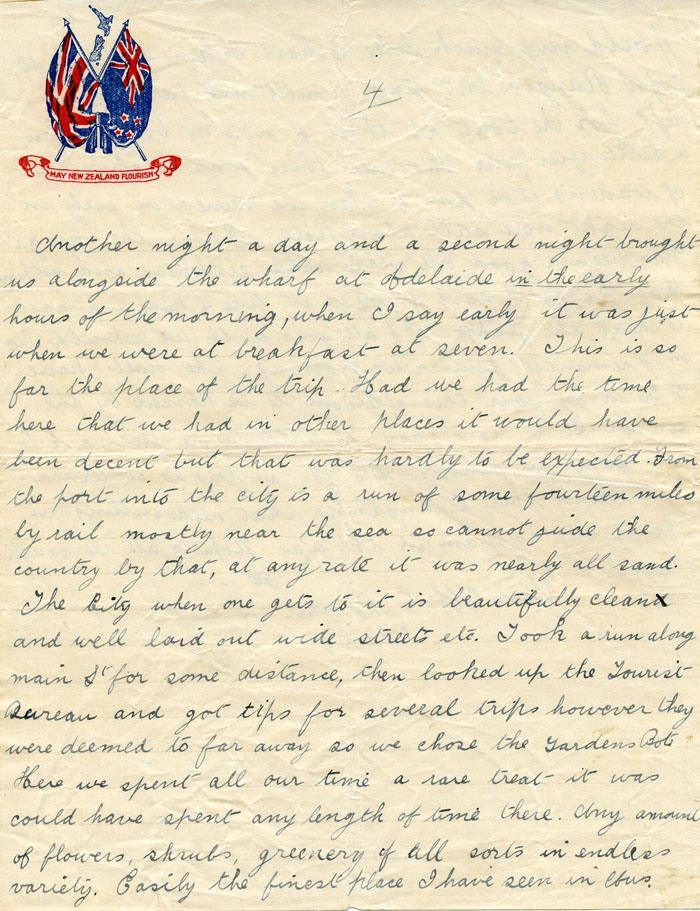 MAY NEW ZEALAND FLOURISH
4
Another night a day and a second night brought
us alongside the wharf at Adelaide in the early
hours of the morning, when I say early it was just
when we were at breakfast at seven. This is so
far the place of the trip. Had we had the time
here that we had in other places it would have
been decent but that was hardly to be expected. From
the port into the city is a run of some fourteen miles
by rail mostly near the sea so cannot jude the
country by that, at any rate it was nearly all sand.
The City when one gets to it is beautifully clean
and well laid out wide streets etc. Took a run along
main St for some distance, then looked up the Tourist
Bureau and got tips for several trips however they
were deemed to far away so we chose the Gardens Bot.
Here we spent all our time a rare treat it was
could have spent any length of time there. Any amount
of flowers, shrubs, greenery of all sorts in endless
variety. Easily the finest place I have seen in Aus.